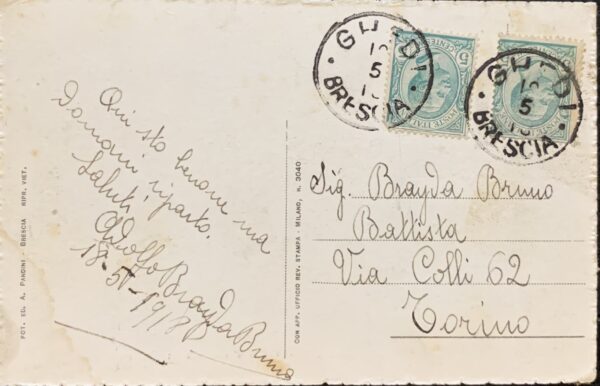 Qui sto benone ma
domani riparto.
Saluti,
Adolfo Brayda Bruno
18-5-1918
FOT. ED. A. PANDINI - BRESCIA RIPR. VIET.
CON APP. UFFICIO REV. STAMPA - MILANO, N. 3040
GHEDI
5
BRESCIA
GHEDI
5
BRESCIA
POSTE ITALIANE
CENTES. 5
Sig. Brayda Bruno
Battista
Via Colli 62
Torino